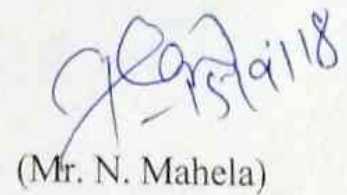 15/9/18
(Mr. N. Mahela)